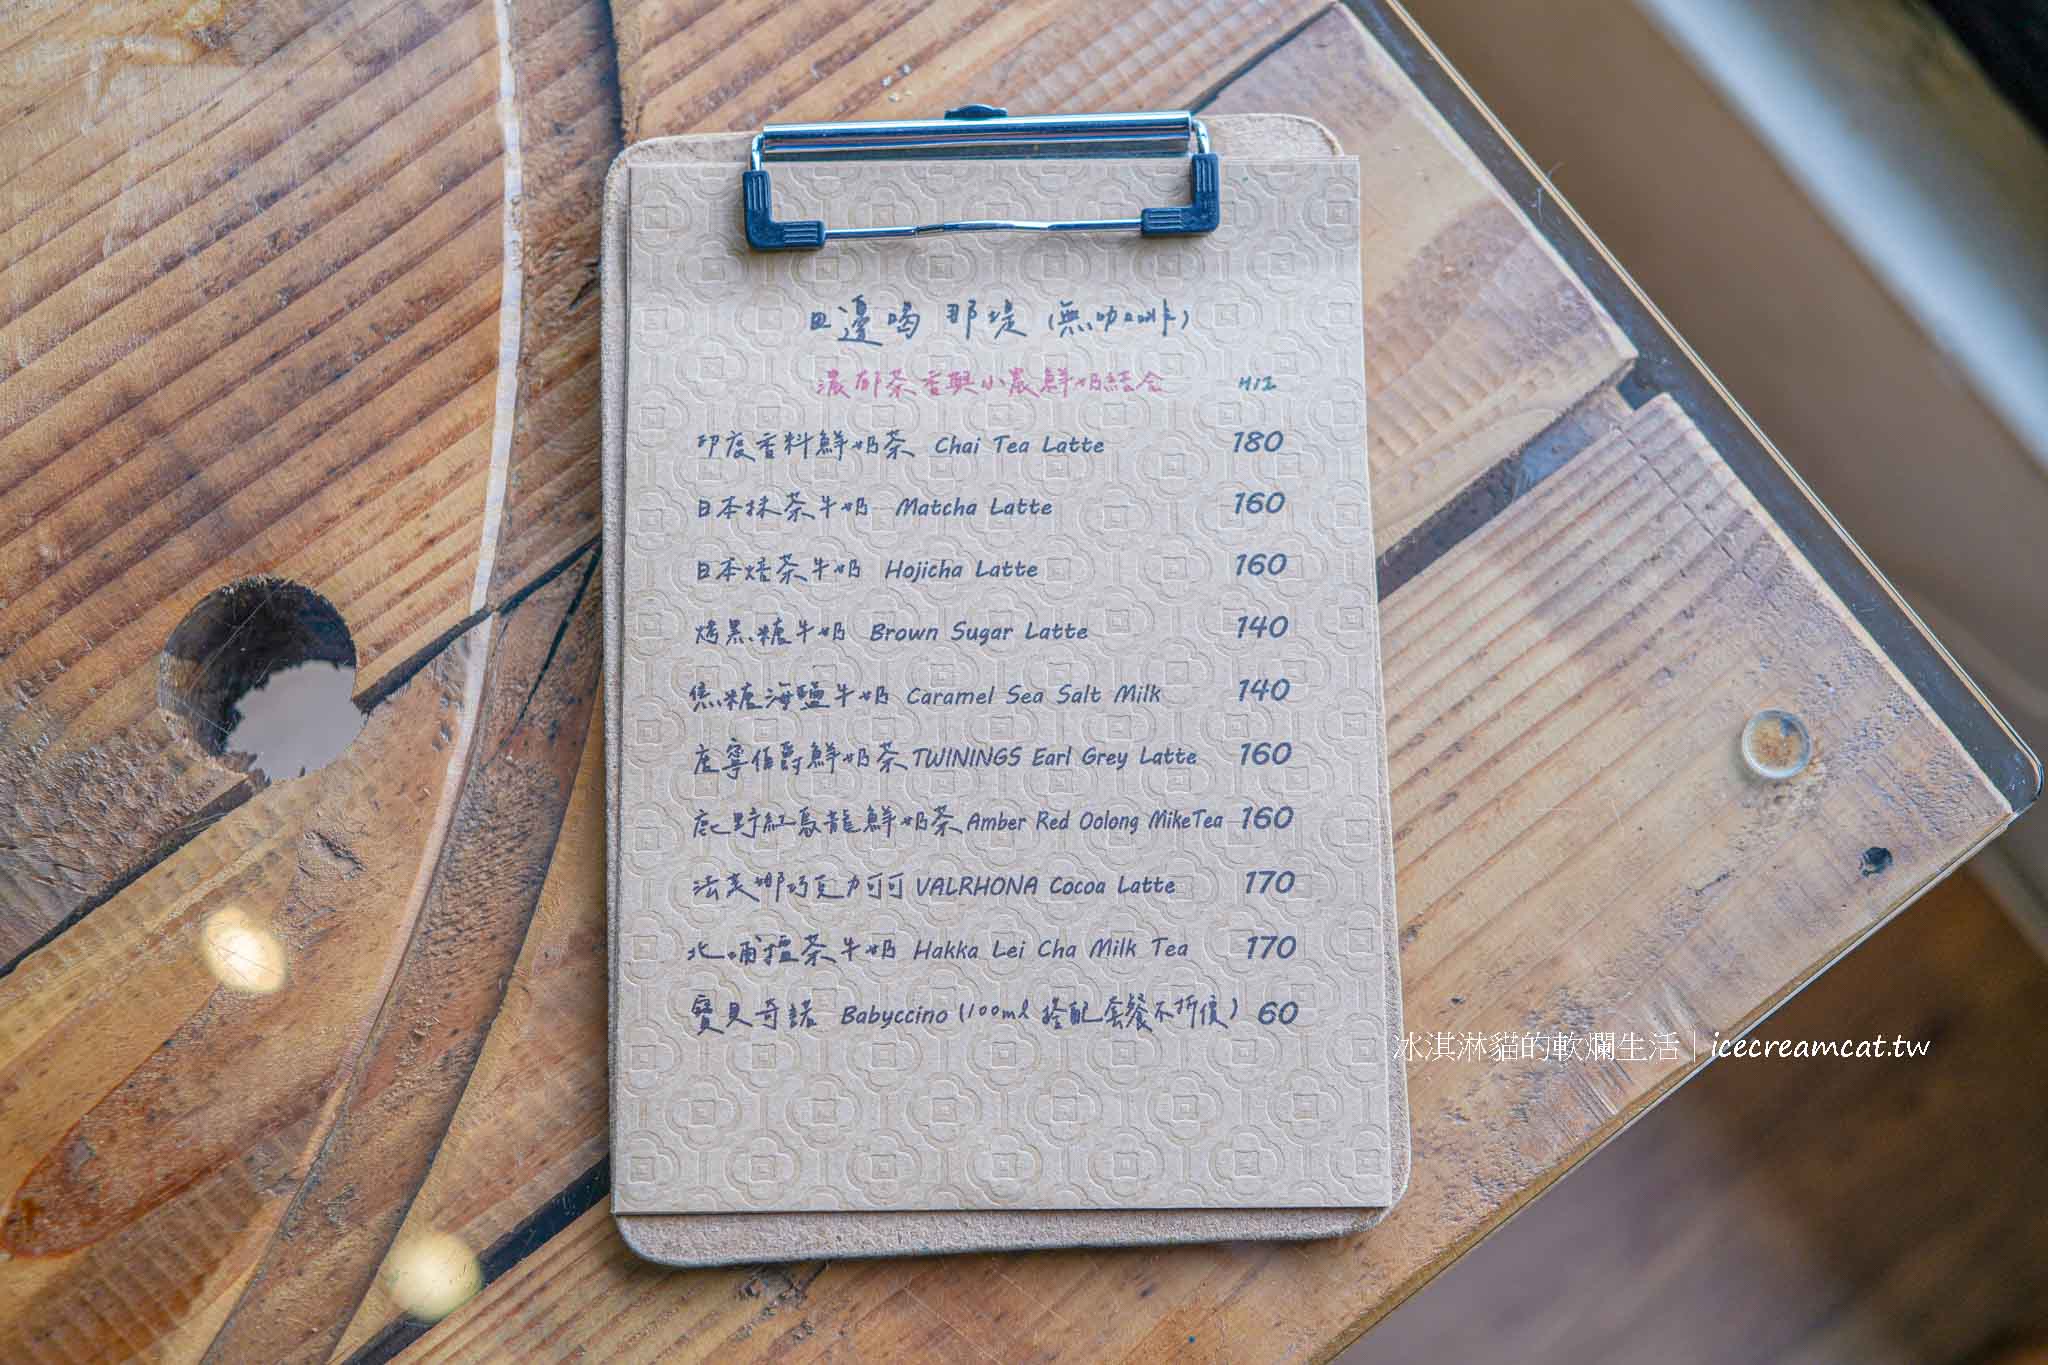 田邊喝 那堤 (無咖啡)
濃郁茶香與小農鮮奶結合 H/I
印度香料鮮奶茶 Chai Tea Latte 180
日本抹茶牛奶 Matcha Latte 160
日本焙茶牛奶 Hojicha Latte 160
烤黑糖牛奶 Brown Sugar Latte 140
焦糖海鹽牛奶 Caramel Sea Salt Milk 140
唐寧伯爵鮮奶茶 TWININGS Earl Grey Latte 160
鹿野紅烏龍鮮奶茶 Amber Red Oolong MikeTea 160
法芙娜巧克力可可 VALRHONA Cocoa Latte 170
北埔擂茶牛奶 Hakka Lei Cha Milk Tea 170
寶貝奇諾 Babyccino (100ml 搭配套餐不折價) 60
冰淇淋貓的軟爛生活｜icecreamcat.tw